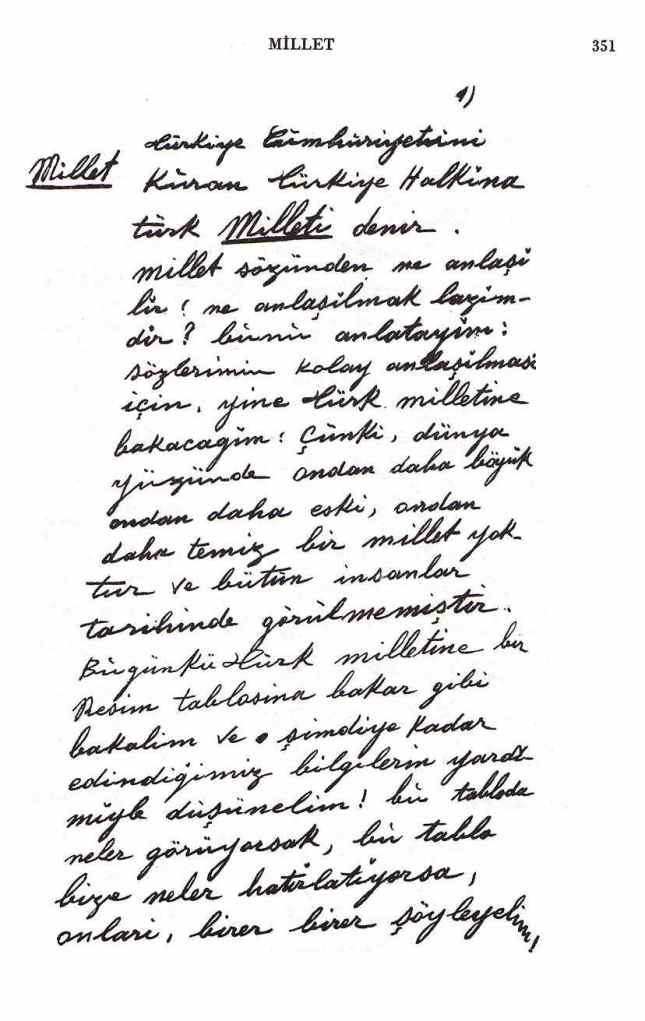 MİLLET 351
1)
Türkiye Cümhüriyetini
Millet Kuran Türkiye Halkına
türk Milleti denir.
millet sözünden ne anlaşi
lir? ne anlaşilmak lazim-
dir? bunu anlatayim:
sözlerimin kolay anlaşilmasi
için, yine Türk milletine
bakacağim: Çünki, dünya
yüzünde ondan daha böyük
ondan daha eski, ondan
daha temiz bir millet yok-
tur ve bütün insanlar
tarihinde görülmemiştir.
Bügünkü Türk milletine bir
Resim tablosina bakar gibi
bakalim ve şimdiye kadar
edindiğimiz bilgilerin yardı-
miyle düşünelim! bu tabloda
neler görüyorsak, bu tablo
bize neler hatırlatiyorsa,
onlari, birer birer söyleyelim!